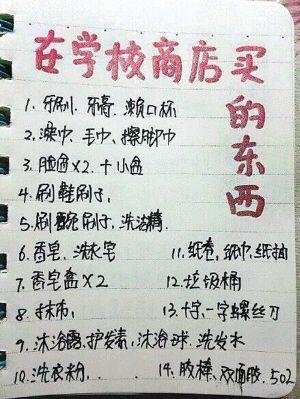 在学校商店买的东西
1. 牙刷、牙膏、漱口杯
2. 澡巾、毛巾、擦脚巾
3. 脸盆×2. 十小盆
4. 刷鞋刷子,
5. 刷碗刷子、洗洁精.
6. 香皂、洗衣皂
11. 纸卷, 纸巾, 纸抽
7. 香皂盒×2
12. 垃圾桶
8. 抹布,
13. 十字, 一字螺丝刀
9. 沐浴露、护发素, 沐浴球、洗发水
10. 洗衣粉、
14. 胶棒、双面胶、502